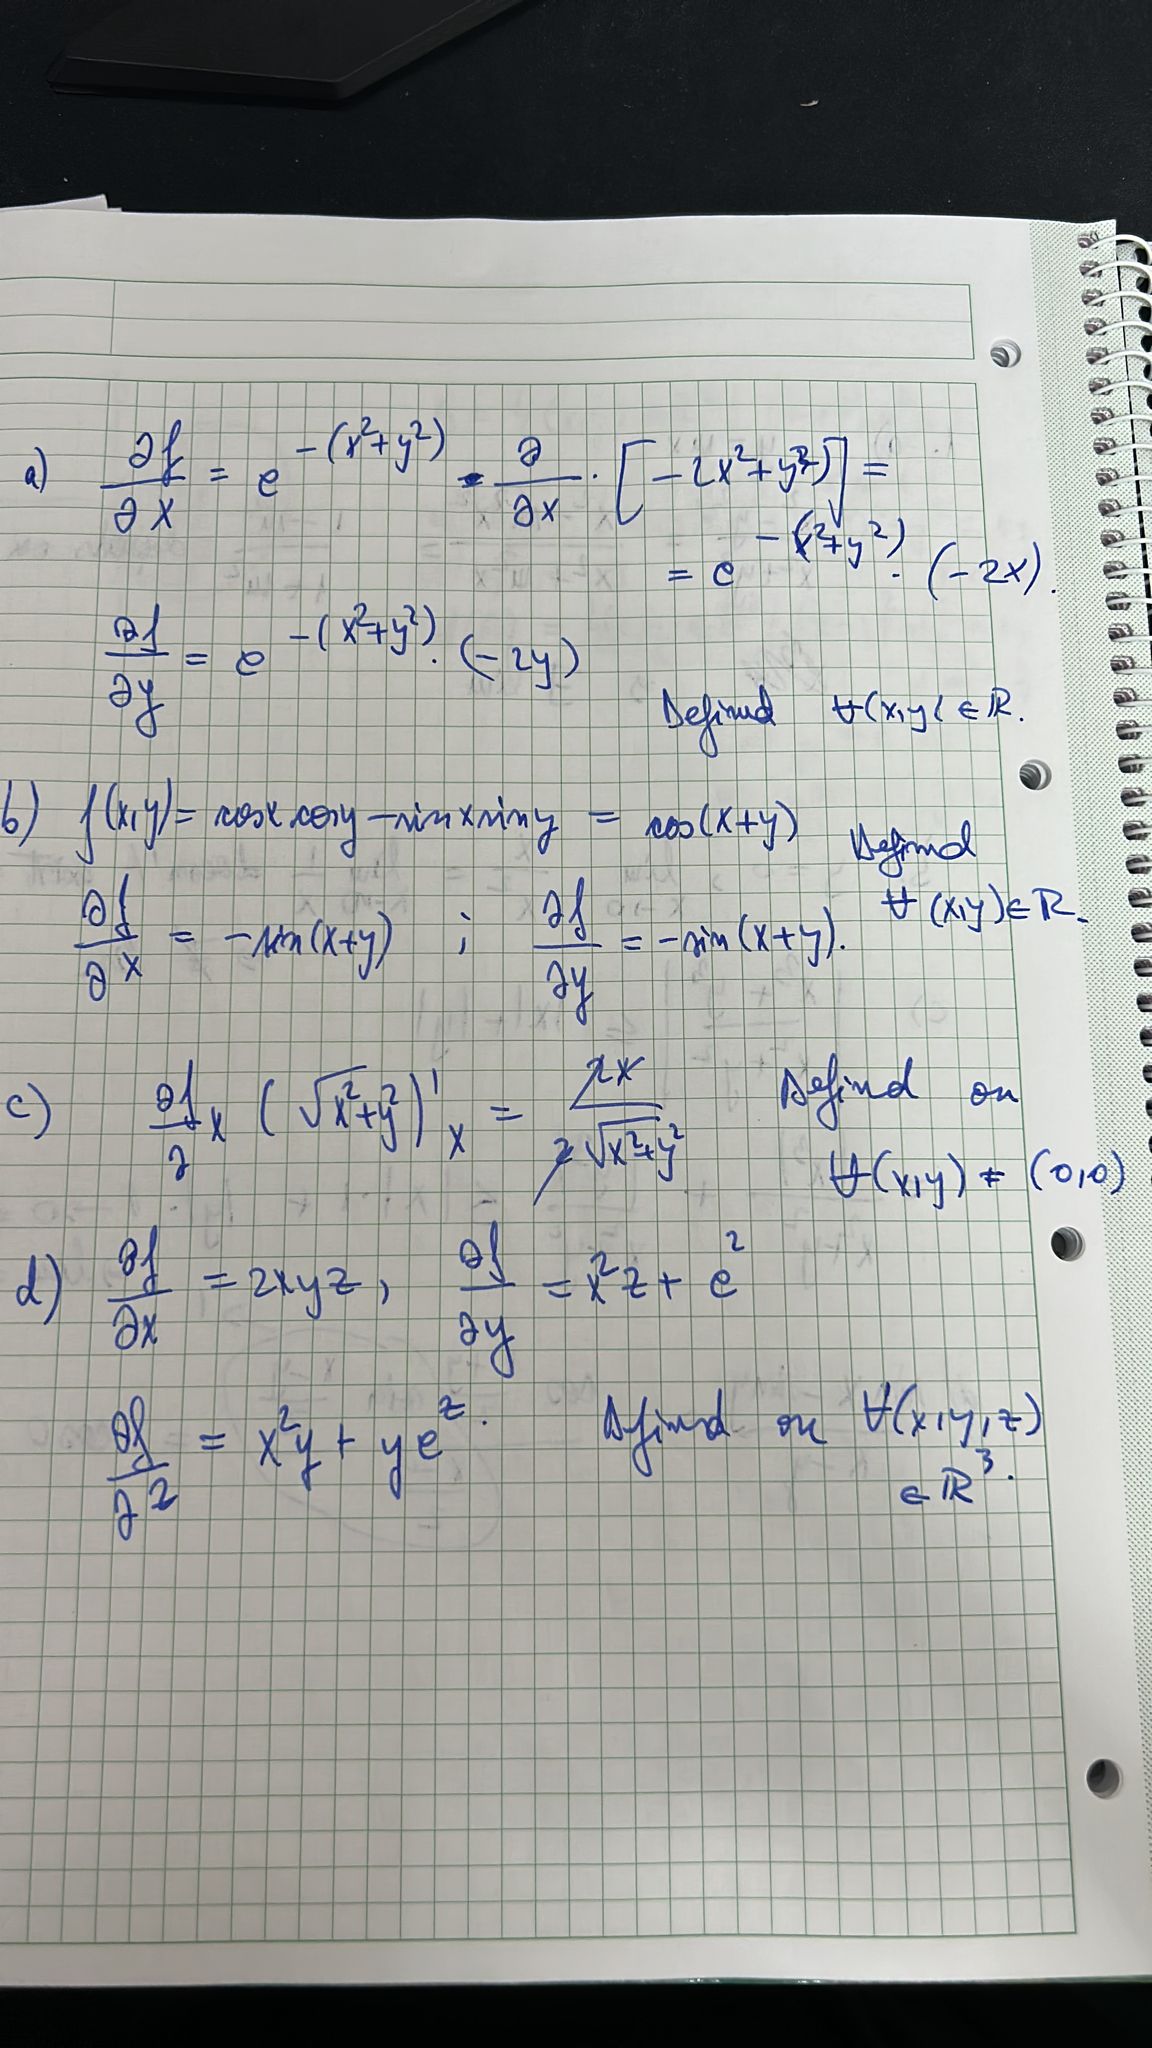 a) ∂f/∂x = e^{-(x²+y²)} · ∂/∂x · [-(x²+y²)] =
= e^{-(x²+y²)} · (-2x).
∂f/∂y = e^{-(x²+y²)} · (-2y)
Defined ∀(x,y) ∈ ℝ.
b) f(x,y) = cosx cosy - sinx siny = cos(x+y) Defined
∀(x,y) ∈ ℝ.
∂f/∂x = -sin(x+y) ; ∂f/∂y = -sin(x+y).
c) ∂f/∂x (√(x²+y²))'ₓ = 2x/(2√(x²+y²)) Defined on
∀(x,y) ≠ (0,0)
d) ∂f/∂x = 2xyz, ∂f/∂y = x²z + e^z
∂f/∂z = x²y + ye^z. Defined on ∀(x,y,z)
∈ ℝ³.